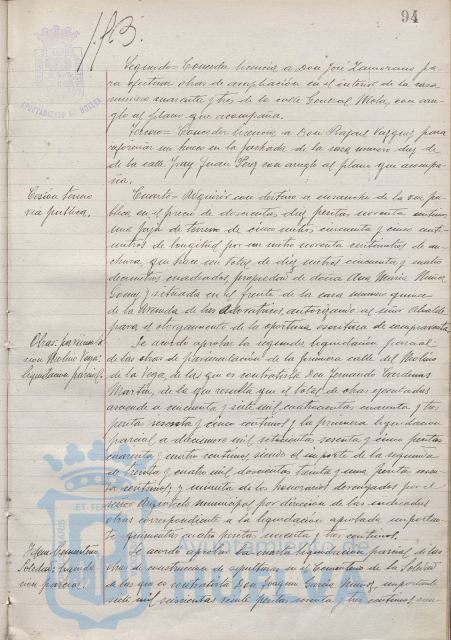 94
Segundo = Conceder licencia a Don José Zamorano pa-
ra efectuar obras de ampliación en el interior de la casa
numero cuarenta y tres de la calle General Mola, con arre-
glo al plano que acompaña.
Tercero = Conceder licencia a Don Rafael Vazquez para
reformar un hueco en la fachada de la casa numero diez
de la calle Fray Juan Perez con arreglo al plano que acompa-
ña.
Cesion terreno
via publica.
Cuarto = Adquirir con destino a ensanche de la via pu-
blica en el precio de doscientas diez pesetas noventa centimos
una faja de terreno de cinco metros cincuenta y cinco centi-
metros de longitud por un metro noventa centimetros de an-
chura, que hace un total de diez metros cincuenta y cuatro
decimetros cuadrados, propiedad de doña Ana Maria Muñoz
Gomez y situada en el frente de la casa numero quince
de la Vereda de las Adoratrices, autorizando al señor Alcalde
para el otorgamiento de la oportuna escritura de compraventa.
Obras pavimenta
cion Molino Vega:
liquidacion parcial.
Se acordó aprobar la segunda liquidación parcial
de las obras de pavimentación de la primera calle del Molino
de la Vega, de las que es contratista Don Fernando Cardenas
Martin, de la que resulta que el total de obras ejecutadas
asciende a cincuenta y siete mil cuatrocientas cincuenta y tres
pesetas sesenta y cinco centimos y la primera liquidacion
parcial a diecinueve mil setecientas sesenta y cinco pesetas
cuarenta y cuatro centimos, siendo el importe de la segunda
de treinta y cuatro mil doscientas treinta y una pesetas
centimos; y minuta de los honorarios devengados por el
señor Arquitecto municipal por direccion de las indicadas
obras correspondiente a la liquidacion aprobada importan-
te quinientas cuatro pesetas cincuenta y tres centimos.
Idem Cementerio
Soledad: liquida
cion parcial.
Se acordó aprobar la cuarta liquidación parcial de las
obras de construccion de sepulturas en el Cementerio de la Soledad
de las que es contratista Don Joaquin Garcia Muñoz, importante
siete mil pesetas noventa y tres centimos,